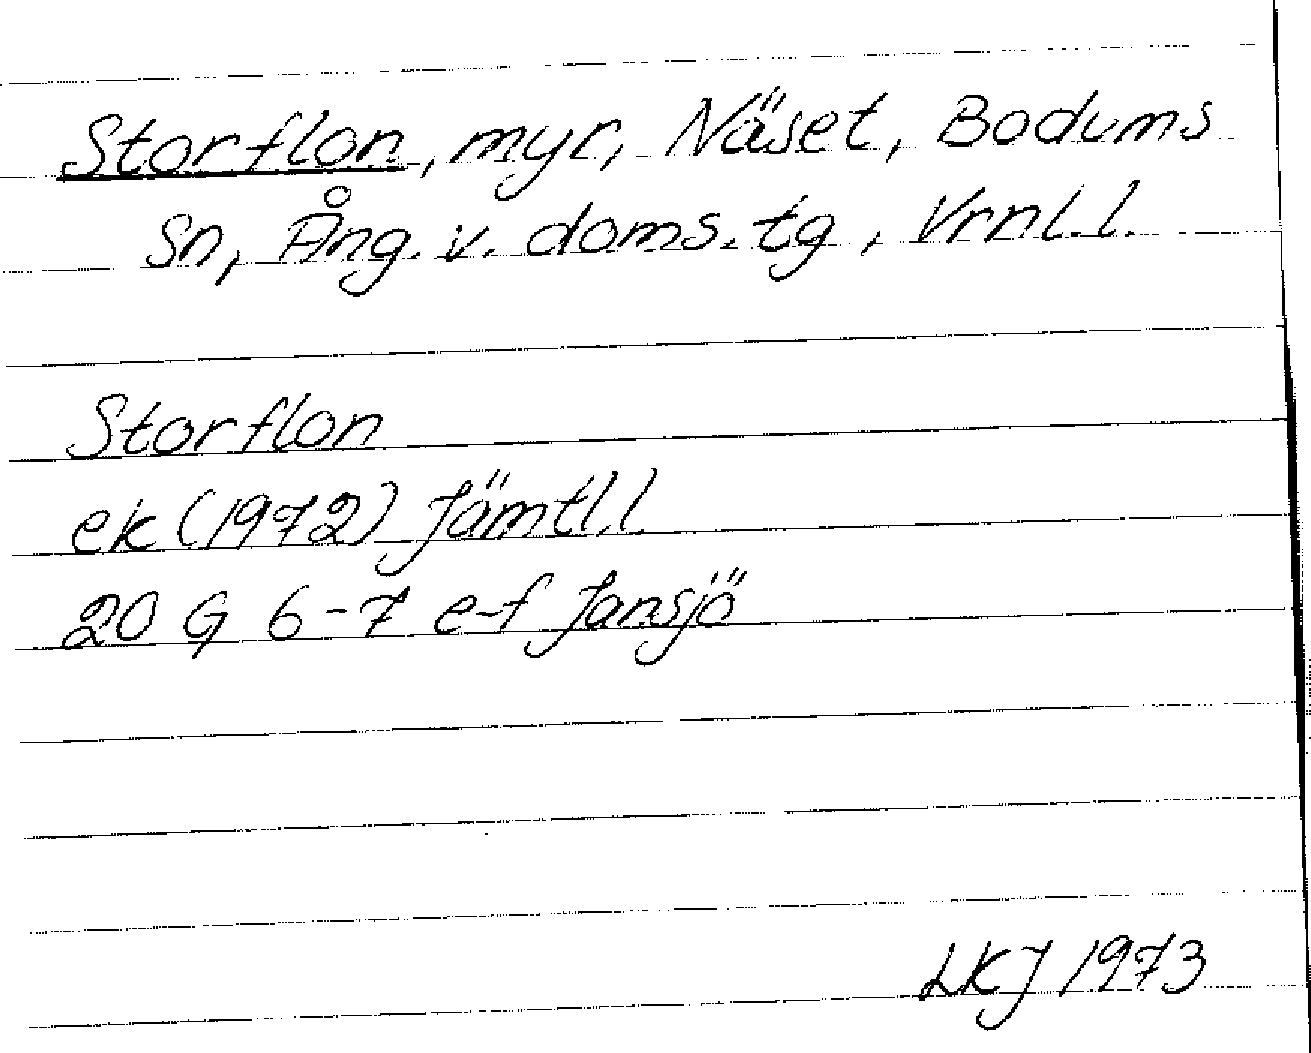 Storflon, myr, Näset, Bodums
sn, Ång. v. doms. tg, Vrnl.l.
Storflon
ek (1972) Jämtl.l.
20 G 6-7 e-f Jansjö
LKJ 1973